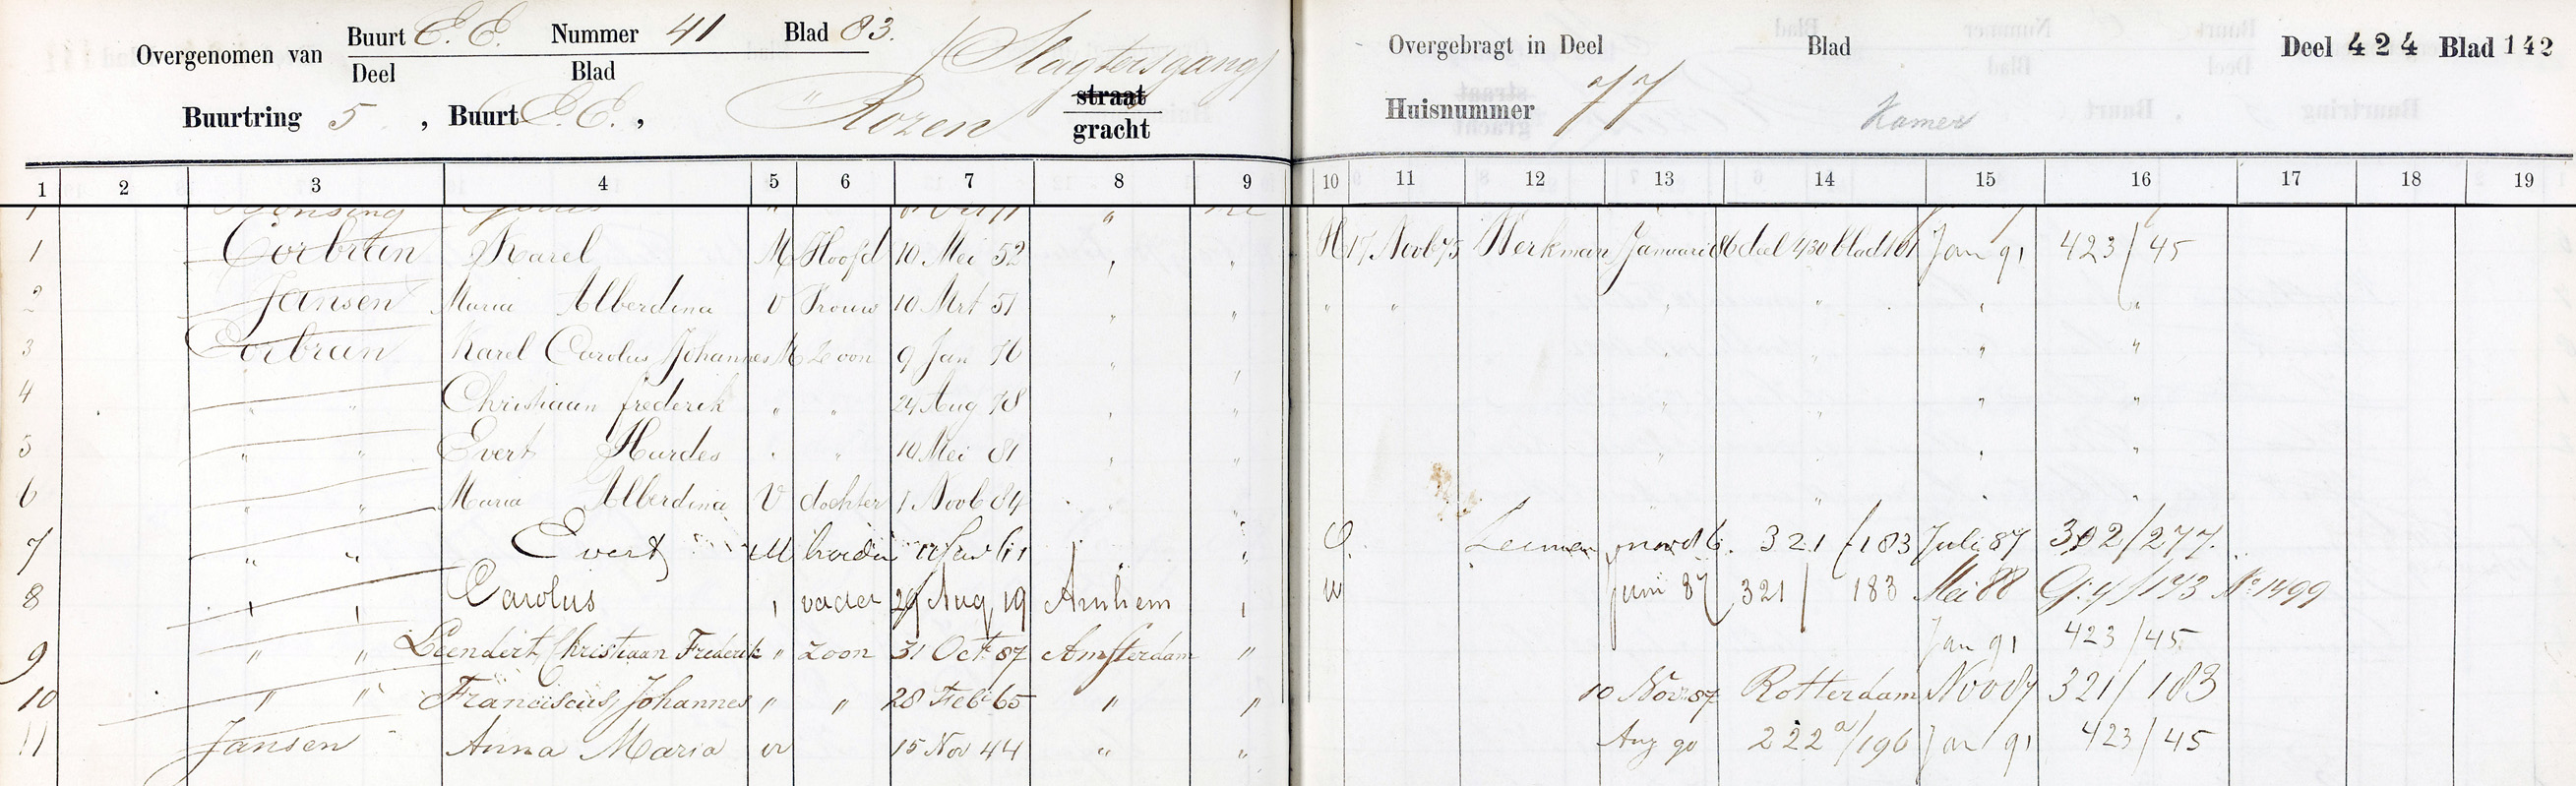 Overgenomen van Buurt E.E. Nummer 41 Blad 83.
Deel Blad
(Slagtersgang)
Buurtring 5, Buurt E.E., Rozen straat gracht
Overgebragt in Deel Blad Deel 424 Blad 142
Huisnummer 77 Kamer
1 2 3 4 5 6 7 8 9 10 11 12 13 14 15 16 17 18 19
1 Corbran Karel M Hoofd 10 Mei 52 " " H 17 Novb 75 Werkman Januari 86 deel 430 blad 161 Jan 91 423/45
2 Jansen Maria Alberdina V Vrouw 10 Mrt 51 " " " " " " " "
3 Corbran Karel Carolus Johannes M Zoon 9 Jan 76 " " " " " "
4 " " Christiaan frederik " " 24 Aug 78 " " " " " "
5 " " Evert Hardes " " 10 Mei 81 " " " " " "
6 " " Maria Alberdina V dochter 1 Novb 84 " " " " " "
7 " " Evert M broeder 61 " O. 321/183 Juli 87 302/277.
8 " " Carolus " vader 29 Aug 19 Arnhem " W Juni 87 321/183 Mei 88 No 1499
9 " " Leendert Christiaan Frederik " zoon 31 Oct 87 Amsterdam " Jan 91 423/45
10 " " Franciscus Johannes " " 28 Feb 65 " " 10 Nov 87 Rotterdam Nov 87 321/183
11 Jansen Anna Maria v 15 Nov 44 " " Aug 90 222a/196 Jan 91 423/45